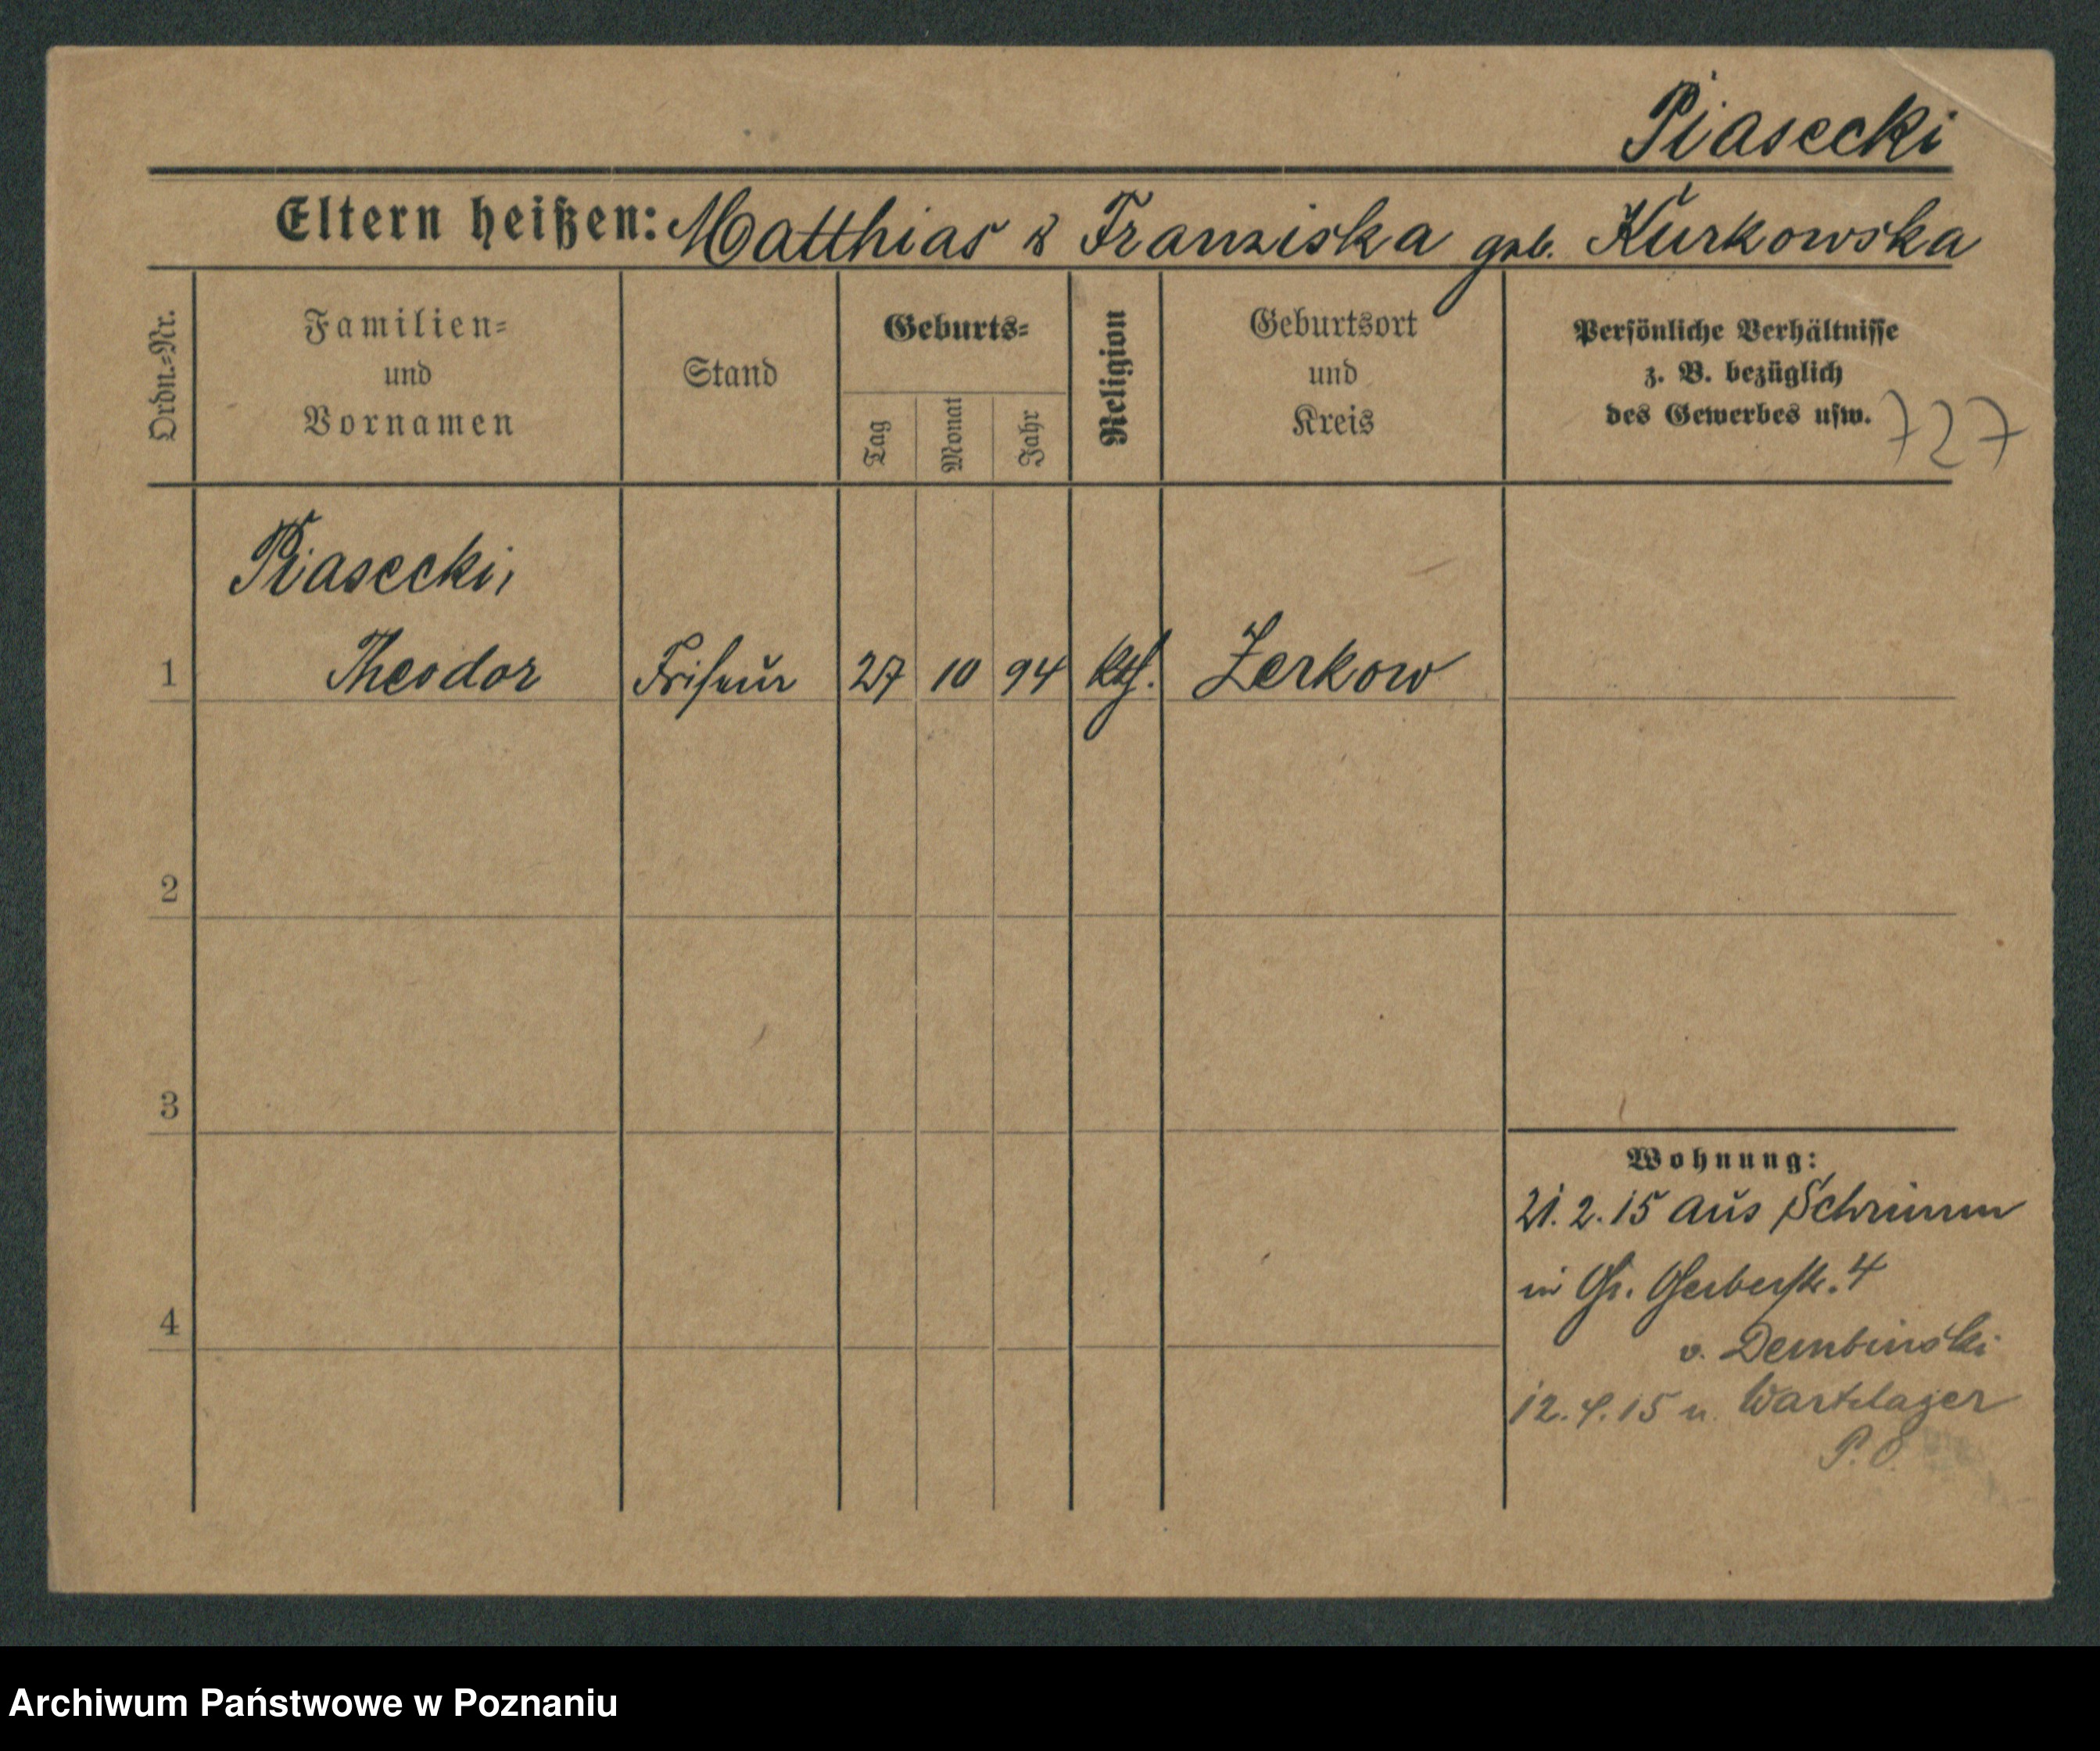 Piasecki
Eltern heißen: Matthias & Franziska geb. Kurkowska
Ordn.=Nr.
Familien=
und
Vornamen
Stand
Geburts=
Tag
Monat
Jahr
Religion
Geburtsort
und
Kreis
Persönliche Verhältnisse
z. B. bezüglich
des Gewerbes usw.
727
Piasecki,
1 Theodor Friseur 27 10 94 kth. Zerkow
2
3
4
Wohnung:
21.2.15 aus Schrimm
in Gr. Gerberstr. 4
v. Dembinski
12.4.15 n. Wartelager
P. O.
Archiwum Państwowe w Poznaniu